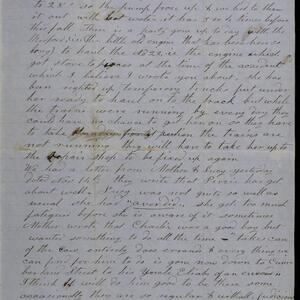 to 28° so the pump froze up & we had to thaw
it out with hot water it has 3 or 4 times before
this fall. There is a party gone up to day with the
(the little old engine that has been here so
long) to haul the old 22, i.e. the engine which
got stove to pieces at the time of the accident
which I believe I wrote you about. She has
been righted up temporary trucks put under
her ready to haul on to the track but while
the trains were running by every day they
could have no chance to get her on, so they have
to take when the trains are
not running they will have to take her up to
the repair shop to be fixed up again
We had a letter from Mother & Lucy yesterday
dated Dec they write that Percie has got
about well. Lucy was not quite so well as
usual she has she got too much
fatigued before she is aware of it sometimes
Mother wrote that Charlie was a good boy but
wanted something to do all the time & takes care
of the cow entirely, Does errands & every thing we
can find for him to do is gone now down to Cum
berland Street to his Uncle on an errand
I think it will do him good to be there some
occasionally they are so regular & withall judicious